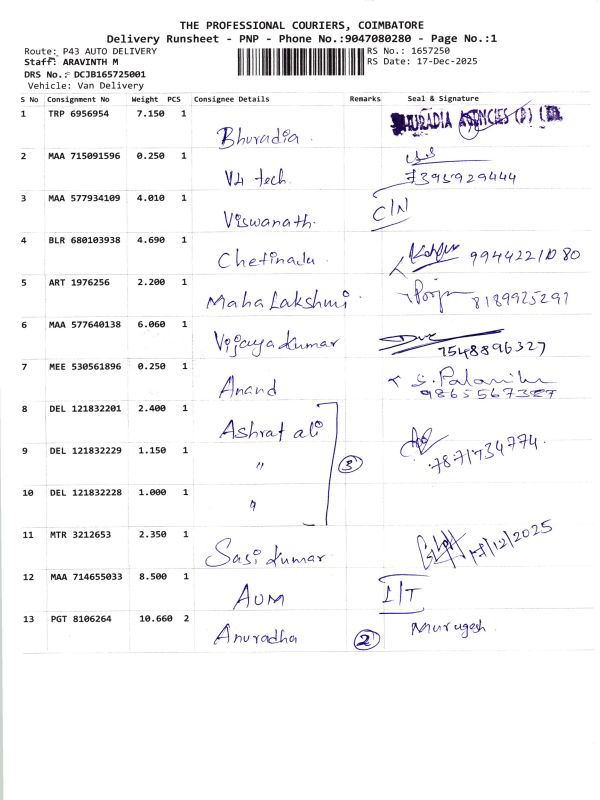 THE PROFESSIONAL COURIERS, COIMBATORE
Delivery Runsheet - PNP - Phone No.:9047080280 - Page No.:1
Route: P43 AUTO DELIVERY RS No.: 1657250
Staff: ARAVINTH M RS Date: 17-Dec-2025
DRS No.: DCJB165725001
Vehicle: Van Delivery
S No Consignment No Weight PCS Consignee Details Remarks Seal & Signature
1 TRP 6956954 7.150 1 Bhuradia. BHURADIA AGENCIES (P) LTD
2 MAA 715091596 0.250 1 V4 tech. 7395929444
3 MAA 577934109 4.010 1 Viswanath. C/N
4 BLR 680103938 4.690 1 Chetinadu. 9944221080
5 ART 1976256 2.200 1 Maha Lakshmi 8189925291
6 MAA 577640138 6.060 1 Vijayakumar 7548896327
7 MEE 530561896 0.250 1 Anand
8 DEL 121832201 2.400 1 Ashraf ali
9 DEL 121832229 1.150 1 " 3 7871734774.
10 DEL 121832228 1.000 1 "
11 MTR 3212653 2.350 1 Sasi kumar 17/12/2025
12 MAA 714655033 8.500 1 AUM I/T
13 PGT 8106264 10.660 2 Anuradha 2 Murugesh.